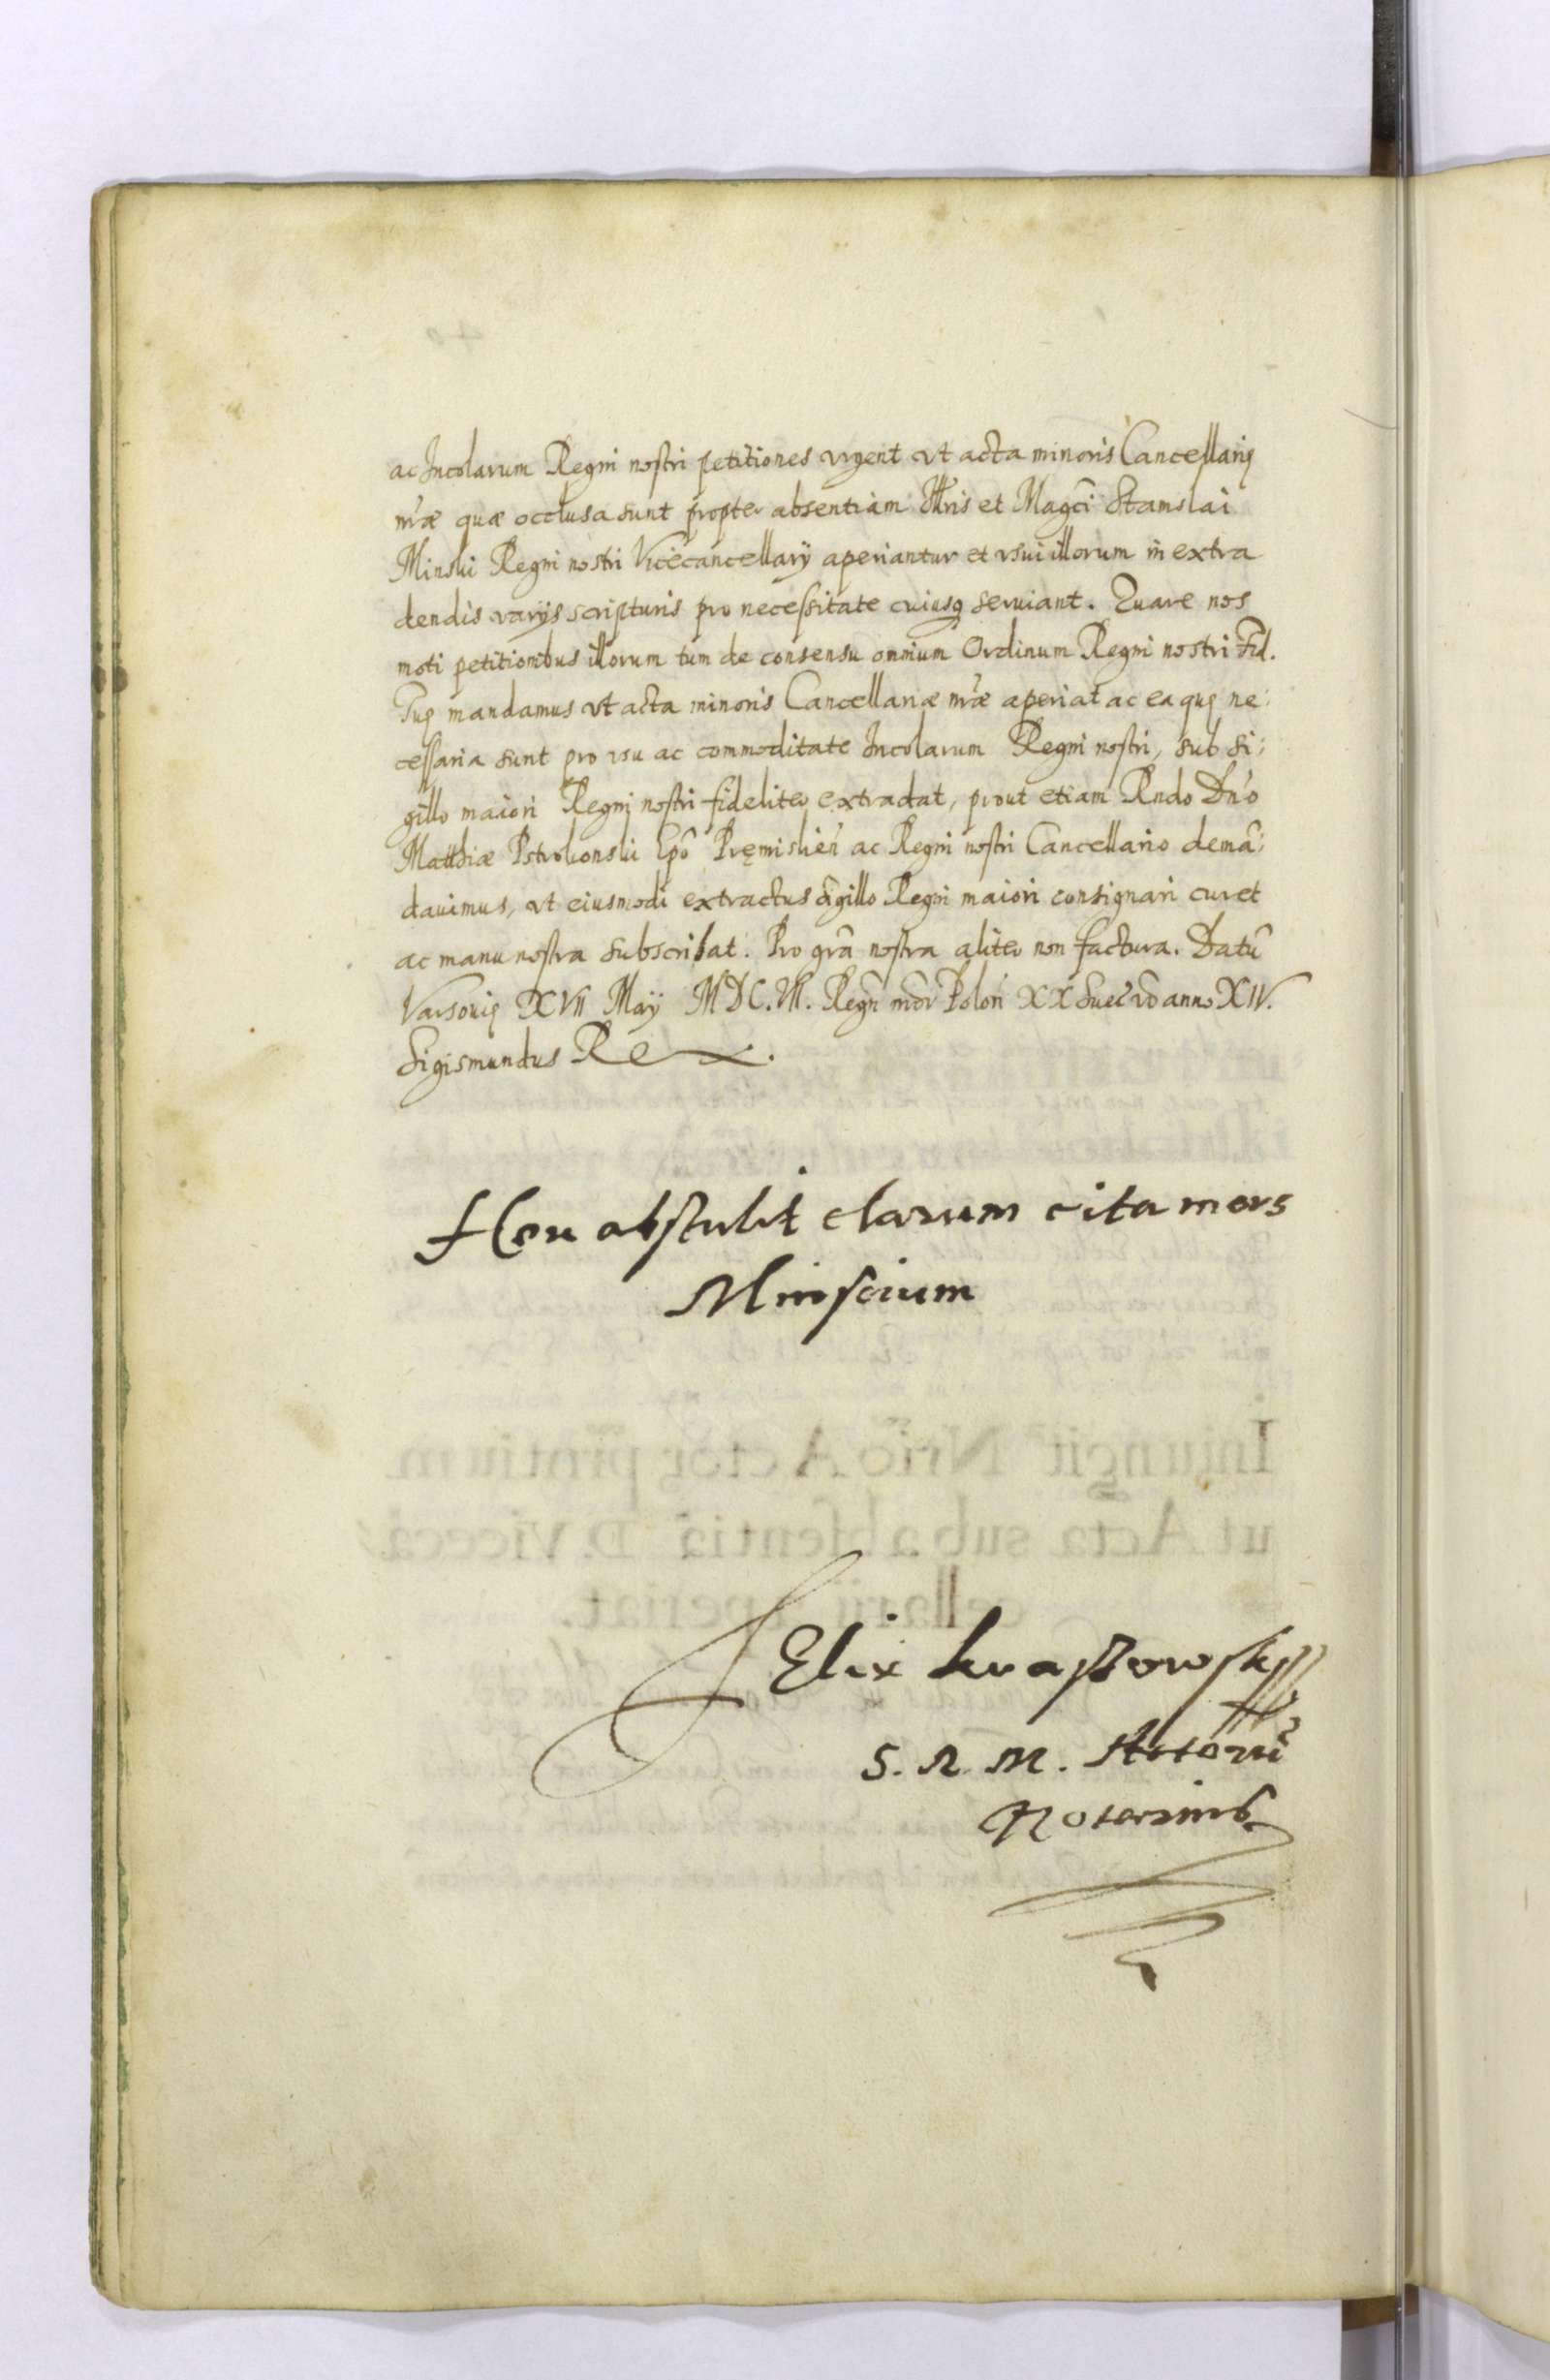 ac Incolarum Regni nostri petitiones vrgent vt acta minoris Cancellarię
nr̃æ quæ occlusa sunt propter absentiam Illr̃is et Magci Stanslai
Minski Regni nostri Vicecancellarÿ aperiantur et vsui illorum in extra
dendis varÿs scripturis pro necessitate cuiusq seruiant. Quare nos
moti petitionibus illorum tum de consensu omnium Ordinum Regni nostri Fid.
Tuę mandamus vt acta minoris Cancellariæ nr̃æ aperiat ac ea quę ne:
cessaria sunt pro vsu ac commoditate Incolarum Regni nostri, sub si:
gillo maiori Regni nostri fideliter extradat, prout etiam Rndo Dño
Matthiæ Pstrokonski Epõ Pręmislień ac Regni nostri Cancellario demã:
dauimus, vt eiusmodi extractus sigillo Regni maiori consignari curet
ac manu nostra subscribat. Pro grã nostra aliter non factura. Datũ
Varsouię XVII Maÿ MDC.VII. Regñ nr̃or Poloń XX Suec vo anno XIV.
Sigismundus Rex.
Heu abstulit clarum cita mors
Minscium
Felix kraszowsky
S. R. M. Actorũ
Notarius
Iniungit Nrio Actor pñtium
ut Acta sub absentiã D. Vicecã
cellarii aperiat.